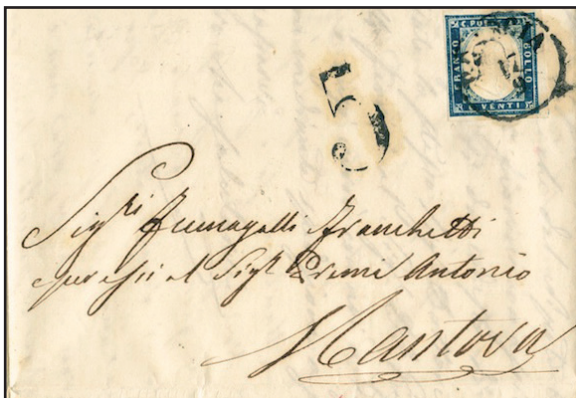 C. POSTE 20
FRANCO
BOLLO
C. VENTI
5
Sigri Fumagalli Franchetti
per essi al Sigr Premi Antonio
Mantova